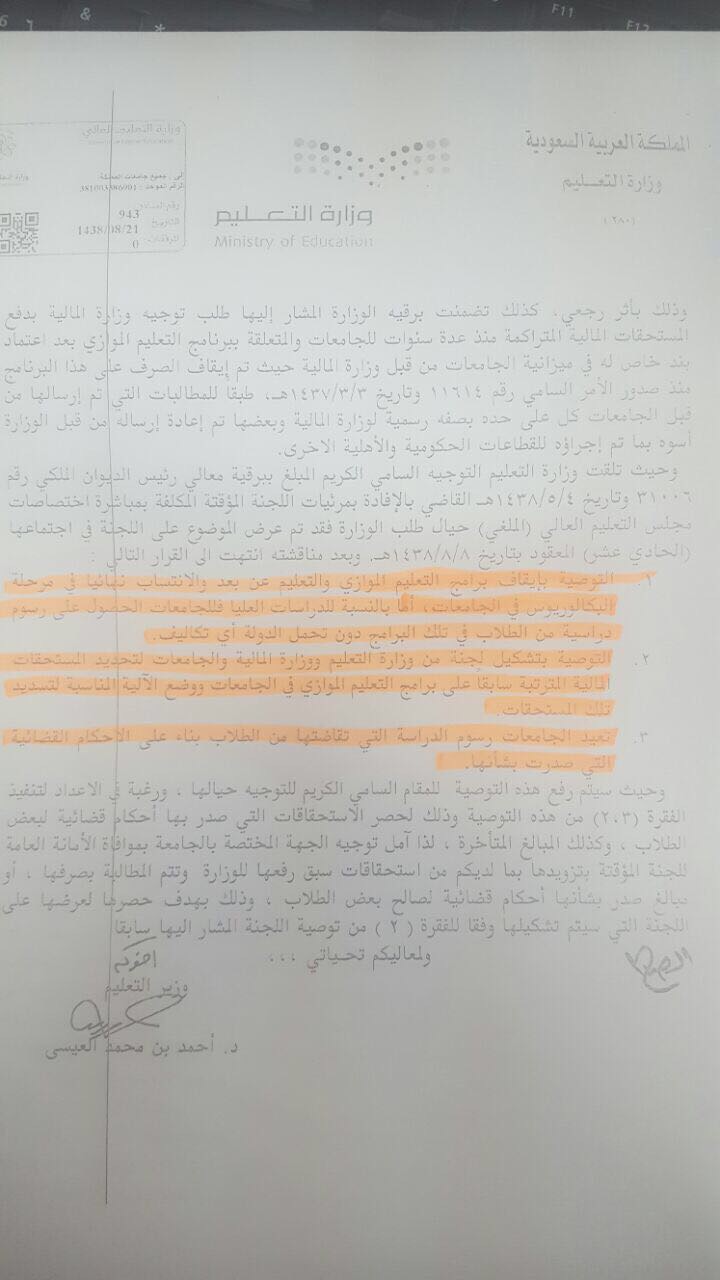 &
*
F11
F12
المملكة العربية السعودية
وزارة التعليم
(٢٨٠)
وزارة التعليم
Ministry of Education
وزارة التعليم العالي
إلى : جميع جامعات المملكة
943
التاريخ: 1438/08/21
المرفقات: 0
وذلك بأثر رجعي، كذلك تضمنت برقيه الوزارة المشار إليها طلب توجيه وزارة المالية بدفع
المستحقات المالية المتراكمة منذ عدة سنوات للجامعات والمتعلقة ببرنامج التعليم الموازي بعد اعتماد
بند خاص له في ميزانية الجامعات من قبل وزارة المالية حيث تم إيقاف الصرف على هذا البرنامج
منذ صدور الأمر السامي رقم ١١٦١٤ وتاريخ ١٤٣٧/٣/٣هـ، طبقا للمطالبات التي تم إرسالها من
قبل الجامعات كل على حده بصفه رسمية لوزارة المالية وبعضها تم إعادة إرساله من قبل الوزارة
أسوه بما تم إجراؤه للقطاعات الحكومية والأهلية الاخرى.
وحيث تلقت وزارة التعليم التوجيه السامي الكريم المبلغ ببرقية معالي رئيس الديوان الملكي رقم
٣١٠٠٦ وتاريخ ١٤٣٨/٥/٤هـ القاضي بالإفادة بمرئيات اللجنة المؤقتة المكلفة بمباشرة اختصاصات
مجلس التعليم العالي (الملغي) حيال طلب الوزارة فقد تم عرض الموضوع على اللجنة في اجتماعها
(الحادي عشر) المعقود بتاريخ ١٤٣٨/٨/٨هـ. وبعد مناقشته انتهت الى القرار التالي :
١. التوصية بإيقاف برامج التعليم الموازي والتعليم عن بعد والانتساب نهائيا في مرحلة
البكالوريوس في الجامعات، أما بالنسبة للدراسات العليا فللجامعات الحصول على رسوم
دراسية من الطلاب في تلك البرامج دون تحمل الدولة أي تكاليف.
٢. التوصية بتشكيل لجنة من وزارة التعليم ووزارة المالية والجامعات لتحديد المستحقات
المالية المترتبة سابقاً على برامج التعليم الموازي في الجامعات ووضع الآلية المناسبة لتسديد
تلك المستحقات.
٣. تعيد الجامعات رسوم الدراسة التي تقاضتها من الطلاب بناء على الأحكام القضائية
التي صدرت بشأنها.
وحيث سيتم رفع هذه التوصية للمقام السامي الكريم للتوجيه حيالها ، ورغبة في الاعداد لتنفيذ
الفقرة (٢،٣) من هذه التوصية وذلك لحصر الاستحقاقات التي صدر بها أحكام قضائية لبعض
الطلاب ، وكذلك المبالغ المتأخرة ، لذا آمل توجيه الجهة المختصة بالجامعة بموافاة الأمانة العامة
للجنة المؤقتة بتزويدها بما لديكم من استحقاقات سبق رفعها للوزارة وتتم المطالبة بصرفها ، أو
مبالغ صدر بشأنها أحكام قضائية لصالح بعض الطلاب ، وذلك بهدف حصرها لعرضها على
اللجنة التي سيتم تشكيلها وفقا للفقرة ( ٢ ) من توصية اللجنة المشار اليها سابقا
ولمعاليكم تحياتي ،،،
وزير التعليم
د. أحمد بن محمد العيسى